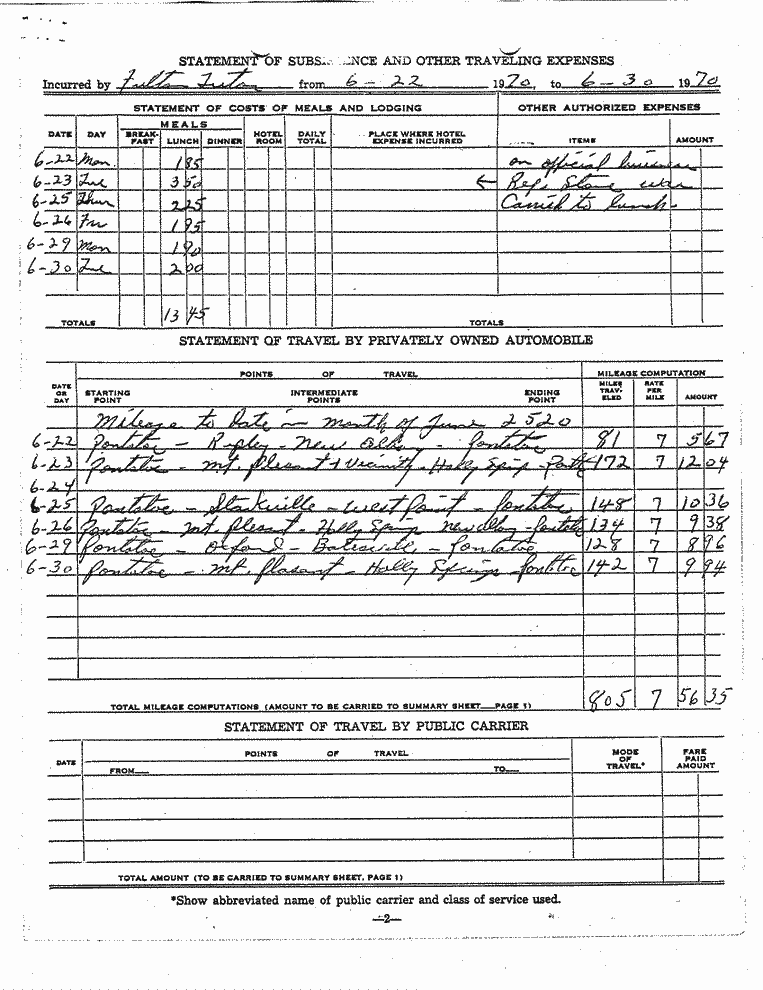 STATEMENT OF SUBS NCE AND OTHER TRAVELING EXPENSES
Incurred by Fulton Tutor from 6-22 1970, to 6-30 1970
STATEMENT OF COSTS OF MEALS AND LODGING OTHER AUTHORIZED EXPENSES
MEALS
DATE DAY BREAK-FAST LUNCH DINNER HOTEL ROOM DAILY TOTAL PLACE WHERE HOTEL EXPENSE INCURRED ITEMS AMOUNT
6-22 Mon. 1 85 on official business
6-23 Tue 3 50 ← Rep. Stone was
6-25 Thur 2 25 Carried to lunch.
6-26 Fri 1 95
6-29 Mon 1 90
6-30 Tue 2 00
TOTALS 13 45 TOTALS
STATEMENT OF TRAVEL BY PRIVATELY OWNED AUTOMOBILE
POINTS OF TRAVEL MILEAGE COMPUTATION
DATE OR DAY STARTING POINT INTERMEDIATE POINTS ENDING POINT MILES TRAV-ELED RATE PER MILE AMOUNT
Mileage to Date in month of June 2520
6-22 Pontotoc - Ripley - New Albany - Pontotoc 81 7 5 67
6-23 Pontotoc - Mt. Pleasant & Vicinity - Holly Springs - 172 7 12 04
6-24
6-25 Pontotoc - Starkville - West Point - Pontotoc 148 7 10 36
6-26 Pontotoc - Mt. Pleasant - Holly Springs New Albany - Pontotoc 134 7 9 38
6-29 Pontotoc - Oxford - Batesville - Pontotoc 128 7 8 96
6-30 Pontotoc - Mt. Pleasant - Holly Springs Pontotoc 142 7 9 94
TOTAL MILEAGE COMPUTATIONS (AMOUNT TO BE CARRIED TO SUMMARY SHEET—PAGE 1) 805 7 56 35
STATEMENT OF TRAVEL BY PUBLIC CARRIER
DATE POINTS OF TRAVEL MODE OF TRAVEL* FARE PAID AMOUNT
FROM— TO—
TOTAL AMOUNT (TO BE CARRIED TO SUMMARY SHEET, PAGE 1)
*Show abbreviated name of public carrier and class of service used.
—2—